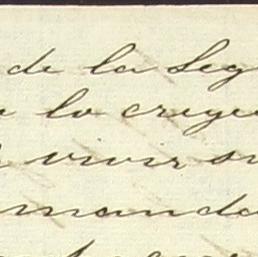 de la Seg
lo creye
vivir su
mando